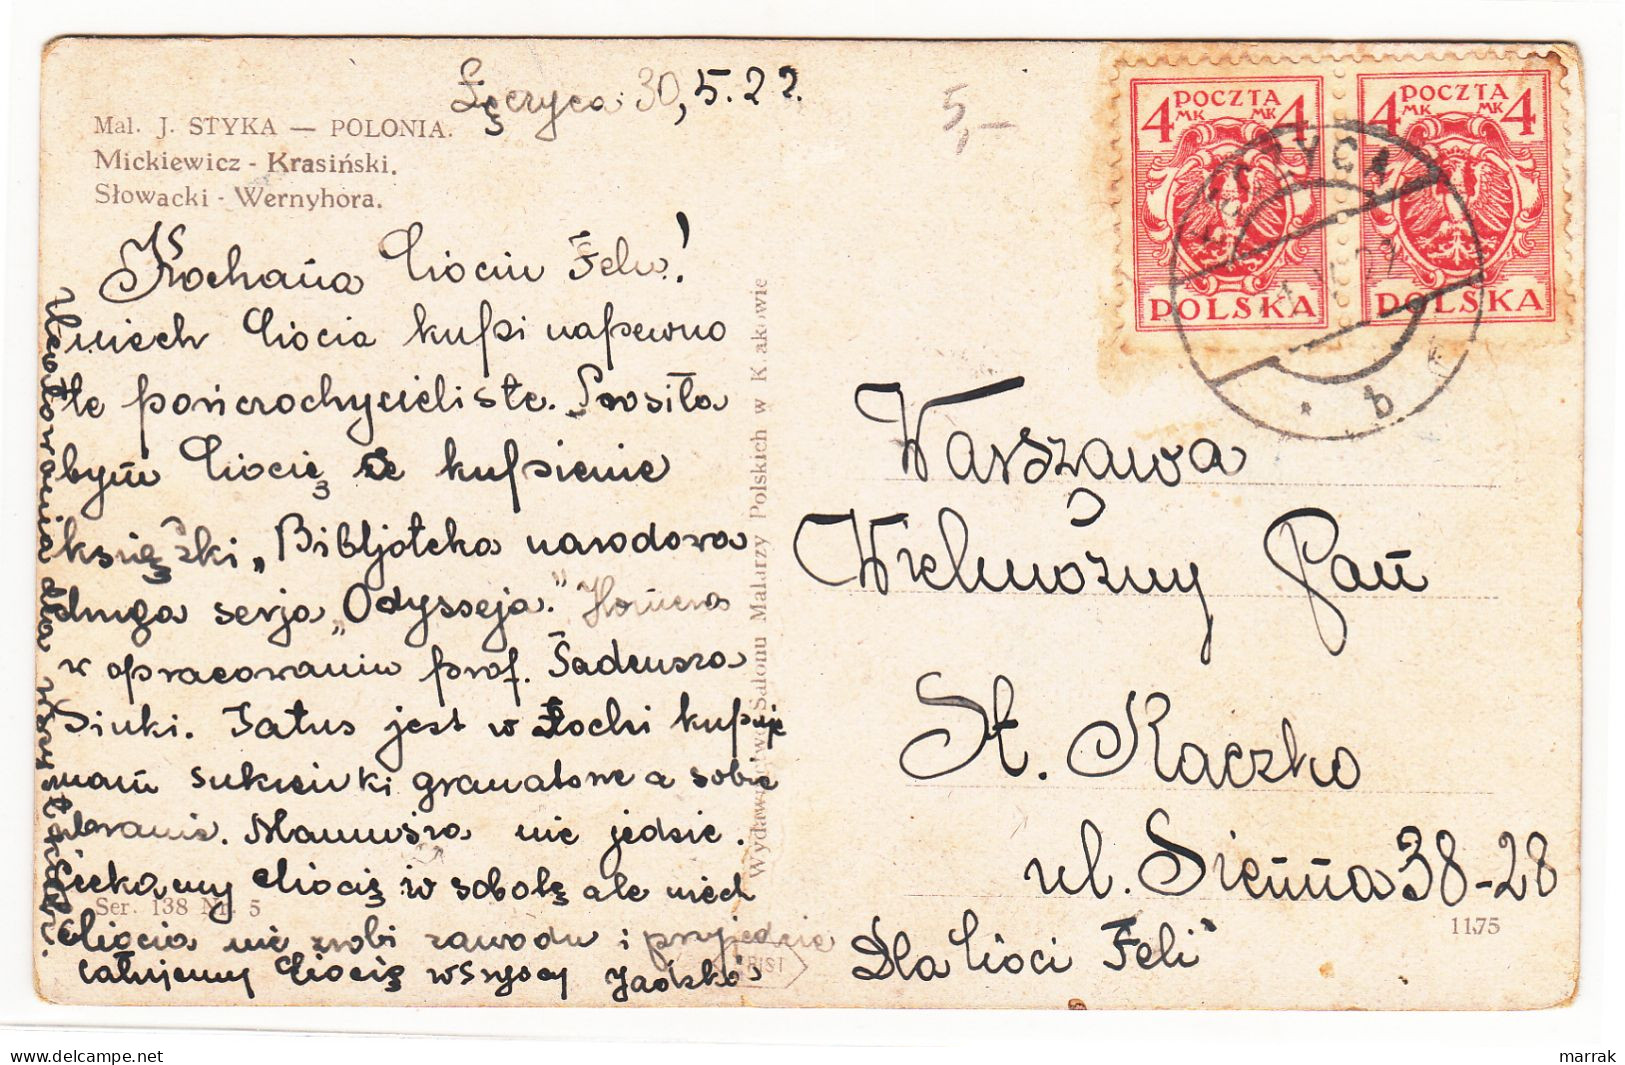 Łęczyca 30, 5. 22.
5,-
Mal. J. STYKA — POLONIA.
Mickiewicz - Krasiński.
Słowacki - Wernyhora.
Kochana Ciociu Felu!
Niech Ciocia kupi napewno
te pończochy cieliste. Prosiła
bym Ciocię o kupienie
książki „Bibljoteka narodowa
druga serja „Odysseja." Homera
w opracowaniu prof. Tadeusza
Sinki. Tatuś jest w Łodzi kupuje
mam sukienki granatowe a sobie
ubranie. Mamusia nie jedzie.
Czekamy Ciocię w sobotę ale niech
Ciocia nie zrobi zawodu i przyjedzie
całujemy Ciocię wszyscy Jadzka
Ucałowania dla
Ser. 138 Nr. 5
Wydawnictwo Salonu Malarzy Polskich w Krakowie
4 POCZTA 4
MK MK
POLSKA
4 POCZTA 4
MK MK
POLSKA
ŁĘCZYCA
* b *
Warszawa
Wielmożny Pan
St. Kaczko
ul. Sienna 38-28
11.75
Dla Cioci Feli
marrak
www.delcampe.net